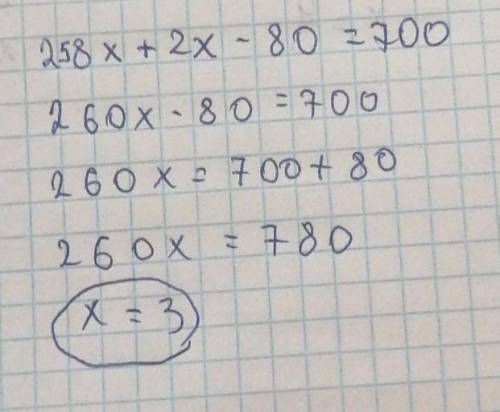 258x + 2x - 80 = 700
260x - 80 = 700
260x = 700 + 80
260x = 780
x = 3